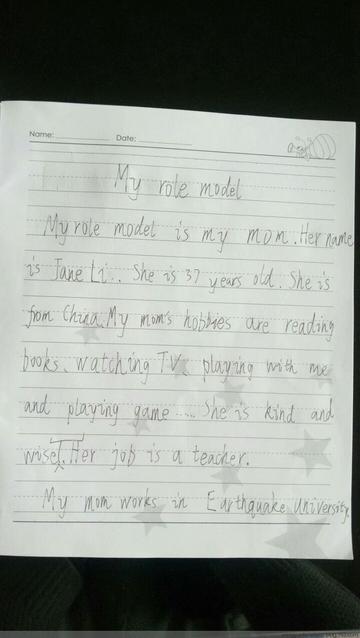 Name: Date:
My role model
My role model is my mom. Her name
is Jane Li.. She is 37 years old. She is
from China. My mom's hobbies are reading
books、watching TV、playing with me
and playing game ..... She is kind and
wise. Her job is a teacher.
My mom works in Earthquake university.